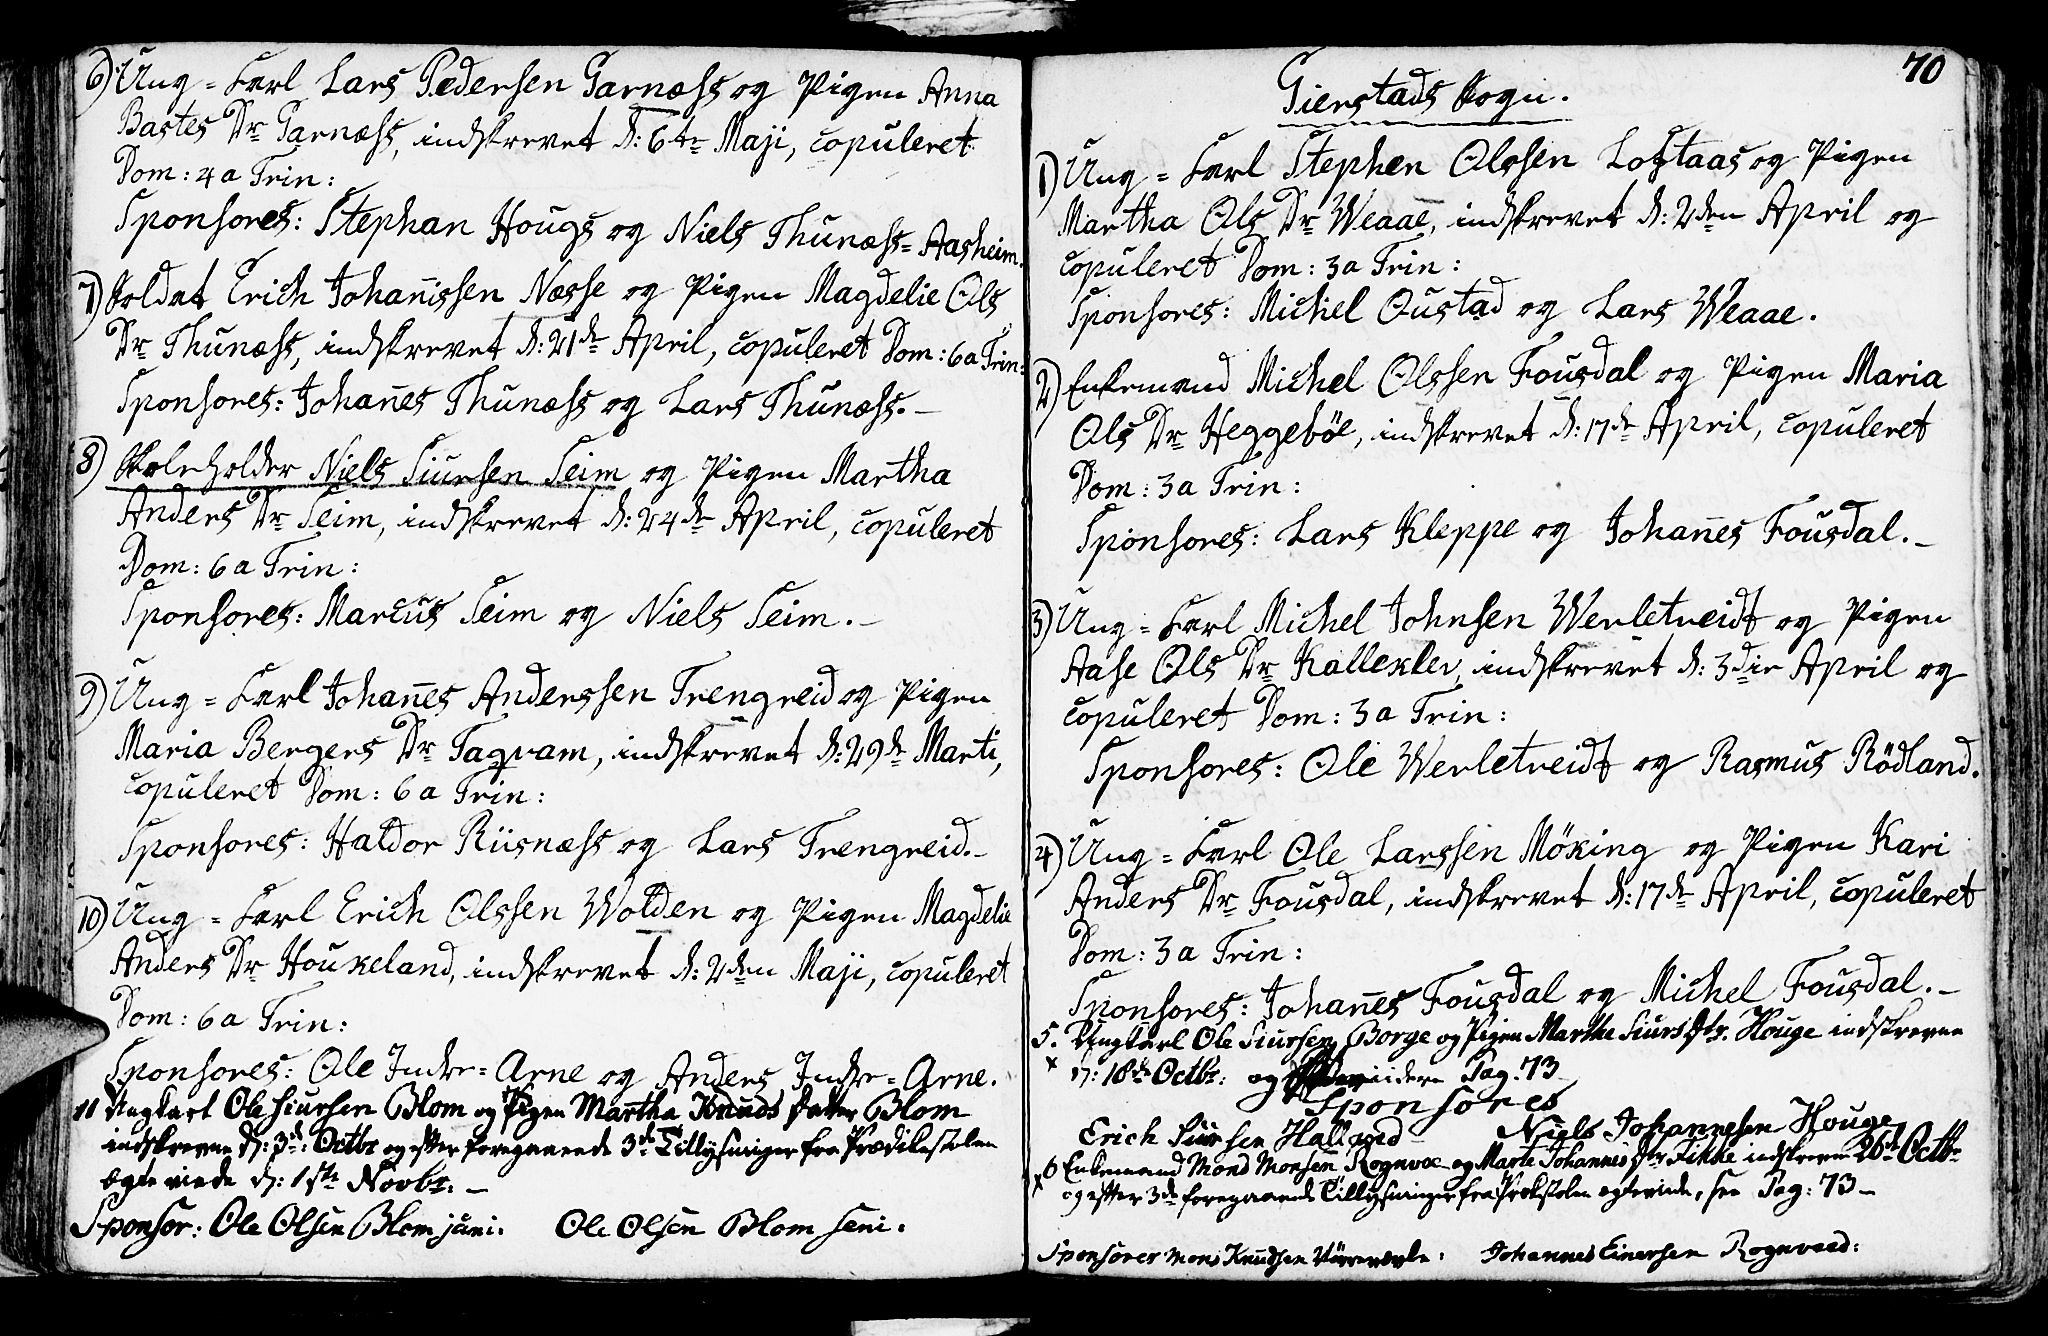 6) Ung=Karl Lars Pedersen Garnæhs og Pigen Anna
Bastes Dr Garnæhs, indskrevet d: 6te Maji, copuleret
Dom: 4a Trin:
Sponsores: Stephan Hougs og Niels Thunæhs=Aasheim.
7) Soldat Erich Johanissen Næsse og Pigen Magdelie Ols
Dr Thunæhs, indskrevet d: 21de April, copuleret Dom: 6a Trin:
Sponsores: Johanes Thunæhs og Lars Thunæhs.–
8) Skoleholder Niels Siursen Seim og Pigen Martha
Anders Dr Seim, indskrevet d: 24de April, copuleret
Dom: 6a Trin:
Sponsores: Marcus Seim og Niels Seim.–
9) Ung=Karl Johanes Anderssen Trengreid og Pigen
Maria Bergers Dr Taqvam, indskrevet d: 29de Marti,
copuleret Dom: 6a Trin:
Sponsores: Haldor Riisnæhs og Lars Trengreid.–
10) Ung=Karl Erich Olssen Wolden og Pigen Magdelie
Anders Dr Houkeland, indskrevet d: 2den Maji, copuleret
Dom: 6a Trin:
Sponsores: Ole Indre=Arne og Anders Indre=Arne.
11 Ungkarl Ole Siursen Blom og Pigen Martha Knuds Datter Blom
indskreven d: 3de: Octbr og efter foregaaende 3de Tillysninger fra Prædikestolen
ægte viede d: 1ste Novbr:–
Sponsor: Ole Olsen Blom juni. Ole Olsen Blom seni.
70
Gierstads Sogn.
1) Ung=Karl Stephen Olssen Loftaas og Pigen
Martha Ols Dr Weaae, indskrevet d: 2den April og
copuleret Dom: 3a Trin:
Sponsores: Michel Oustad og Lars Weaae.
2) Enkemand Michel Olssen Fousdal og Pigen Maria
Ols Dr Heggeböe, indskrevet d: 17de April, copuleret
Dom: 3a Trin:
Sponsores: Lars Kleppe og Johanes Fousdal.–
3) Ung=Karl Michel Johnsen Werletreidt og Pigen
Aase Ols Dr Kalleklev, indskrevet d: 3die April og
copuleret Dom: 3a Trin:
Sponsores: Ole Werletreidt og Rasmus Rödland.
4) Ung=Karl Ole Larssen Möking og Pigen Kari
Anders Dr Fousdal, indskrevet d: 17de April, copuleret
Dom: 3a Trin:
Sponsores: Johanes Fousdal og Michel Fousdal.–
5. Ungkarl Ole Siursen Borge og Pigen Marthe Siurs Dtr. Houge indskreven
x d: 18de Octbr: og videre Pag. 73
Sponsores
Erich Siursen Halland Niels Johannesen Houge
x 6 Enkemand Mons Monsen Rognvoe og Marte Johannes Dtr Fikke indskreven 26de Octbr
og efter 3de foregaaende Tillysninger fra Prækstolen ægteviede, see Pag: 73–
Sponsorer Mons Knudsen Johannes Einersen Rognved: